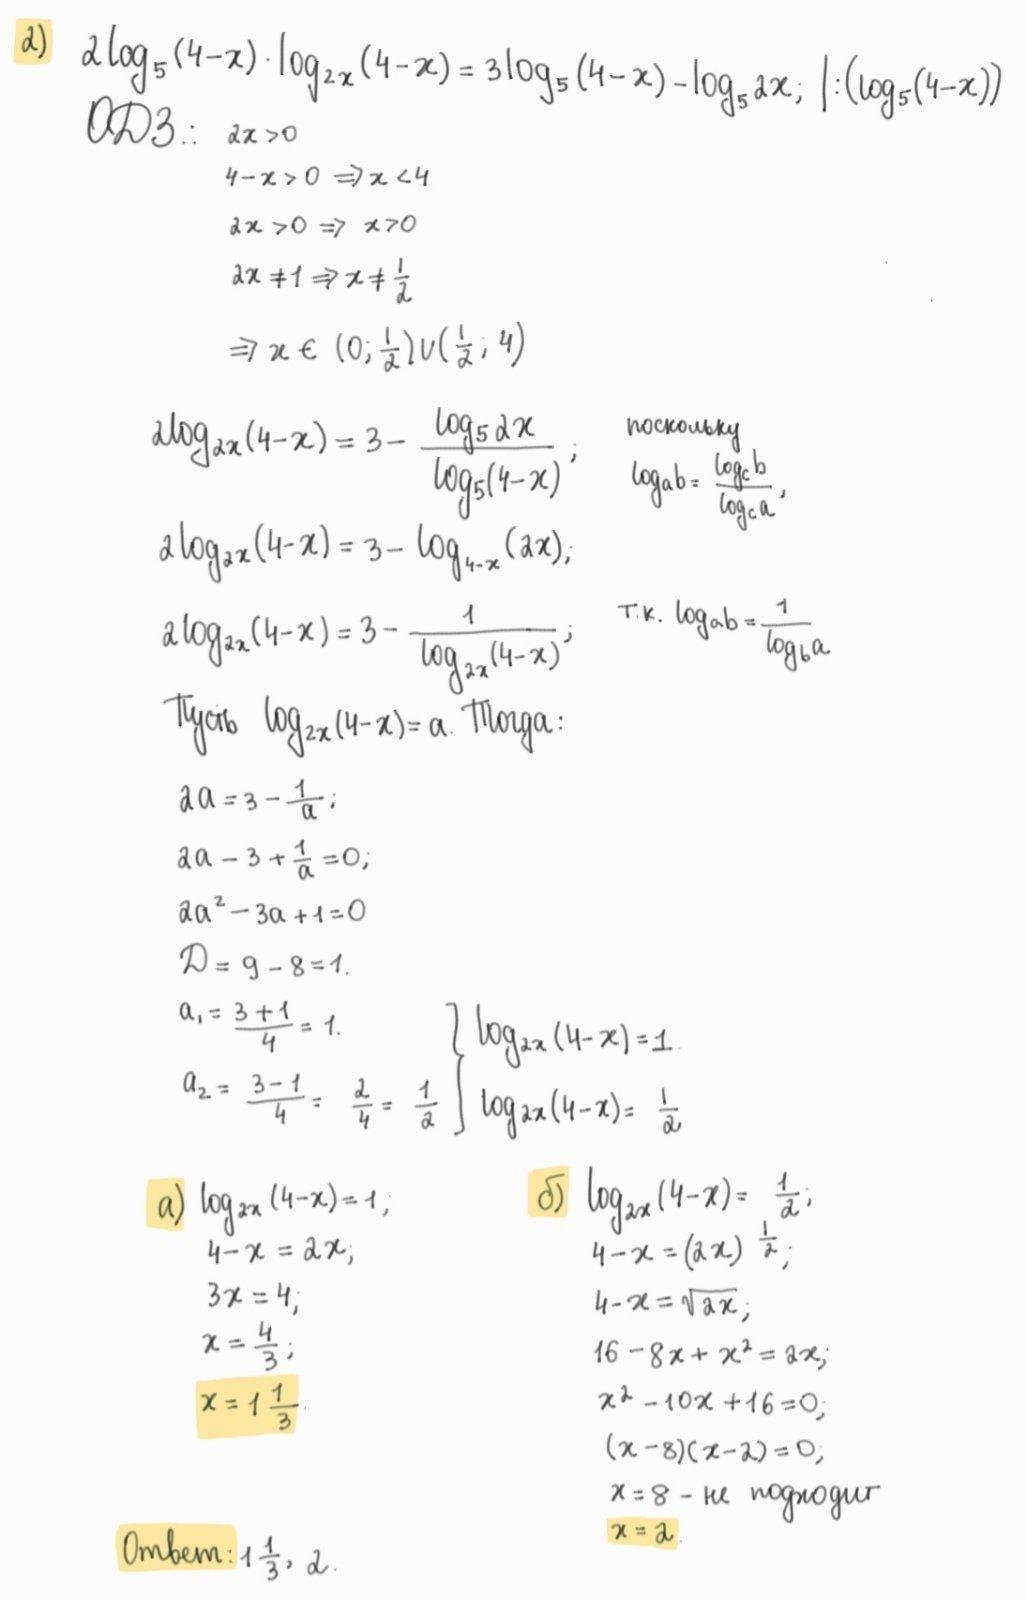 2) 2log₅(4-x)·log₂ₓ(4-x)=3log₅(4-x)-log₅2x; |:(log₅(4-x))
ОДЗ.: 2x>0
4-x>0 ⇒ x<4
2x>0 ⇒ x>0
2x≠1 ⇒ x≠1/2
⇒ x ∈ (0; 1/2)∪(1/2; 4)
2log₂ₓ(4-x)=3- log₅2x/log₅(4-x); поскольку
logₐb= log_c b/log_c a,
2log₂ₓ(4-x)=3-log₄₋ₓ(2x);
2log₂ₓ(4-x)=3- 1/log₂ₓ(4-x); т.к. logₐb= 1/log_b a
Пусть log₂ₓ(4-x)=a. Тогда:
2a=3-1/a;
2a-3+1/a=0;
2a²-3a+1=0
D=9-8=1.
a₁= (3+1)/4 = 1. } log₂ₓ(4-x)=1.
a₂= (3-1)/4 = 2/4 = 1/2 } log₂ₓ(4-x)= 1/2
а) log₂ₓ(4-x)=1;
4-x=2x;
3x=4;
x=4/3;
x=1 1/3.
б) log₂ₓ(4-x)= 1/2;
4-x=(2x)^1/2;
4-x=√2x;
16-8x+x²=2x;
x²-10x+16=0;
(x-8)(x-2)=0;
x=8 - не подходит
x=2.
Ответ: 1 1/3, 2.